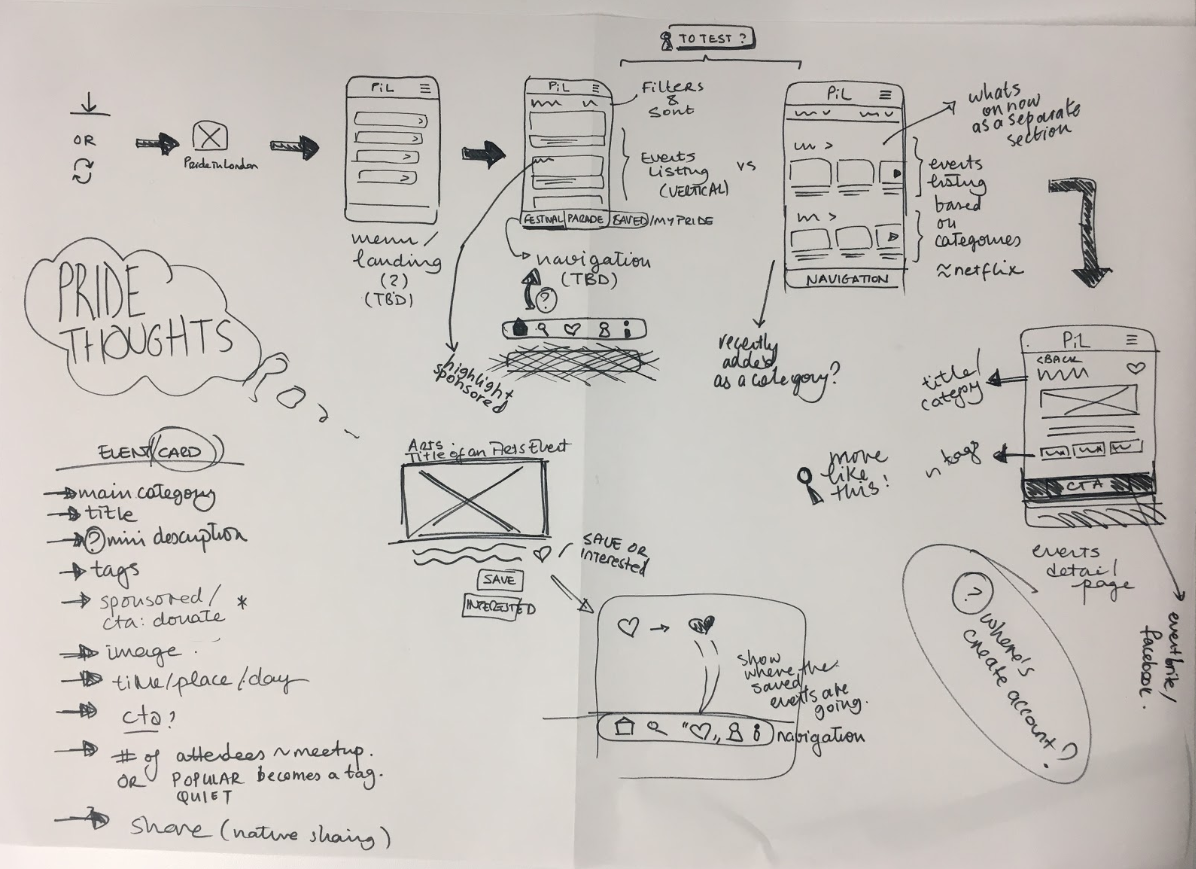 TO TEST?
OR
Pride in London
PiL
menu/
landing
(?)
(TBD)
PiL
Filters
&
Sort
Events
Listing
(VERTICAL)
FESTIVAL PARADE SAVED/MY PRIDE
navigation
(TBD)
?
highlight
sponsored
vs
PiL
NAVIGATION
whats
on now
as a separate
section
events
listing
based
on
categories
≈netflix
recently
added
as a category?
PRIDE
THOUGHTS
PiL
<BACK
CTA
title/
category
n tags
more
like
this!
events
detail
page
eventbrite/
facebook.
? where's
create account?
EVENT CARD
main category
title
? mini description
tags
sponsored/ *
cta: donate
image
time/place/day
cta?
# of attendees ~ meetup.
OR POPULAR becomes a tag.
QUIET
share (native sharing)
Arts
Title of an Arts Event
SAVE OR
interested
SAVE
INTERESTED
show
where the
saved
events are
going.
navigation